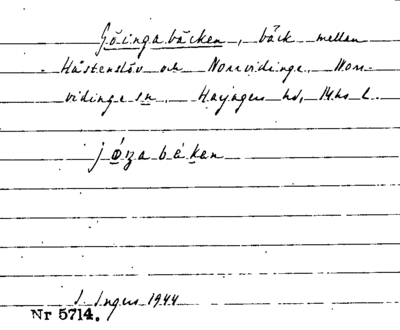 Göingabäcken, bäck mellan
Håstenslöv och Norrvidinge, Norr-
vidinge sn, Harjagers hd, Mhs l.
jö́ŋabä́kan
J. Ingers 1944
Nr 5714.